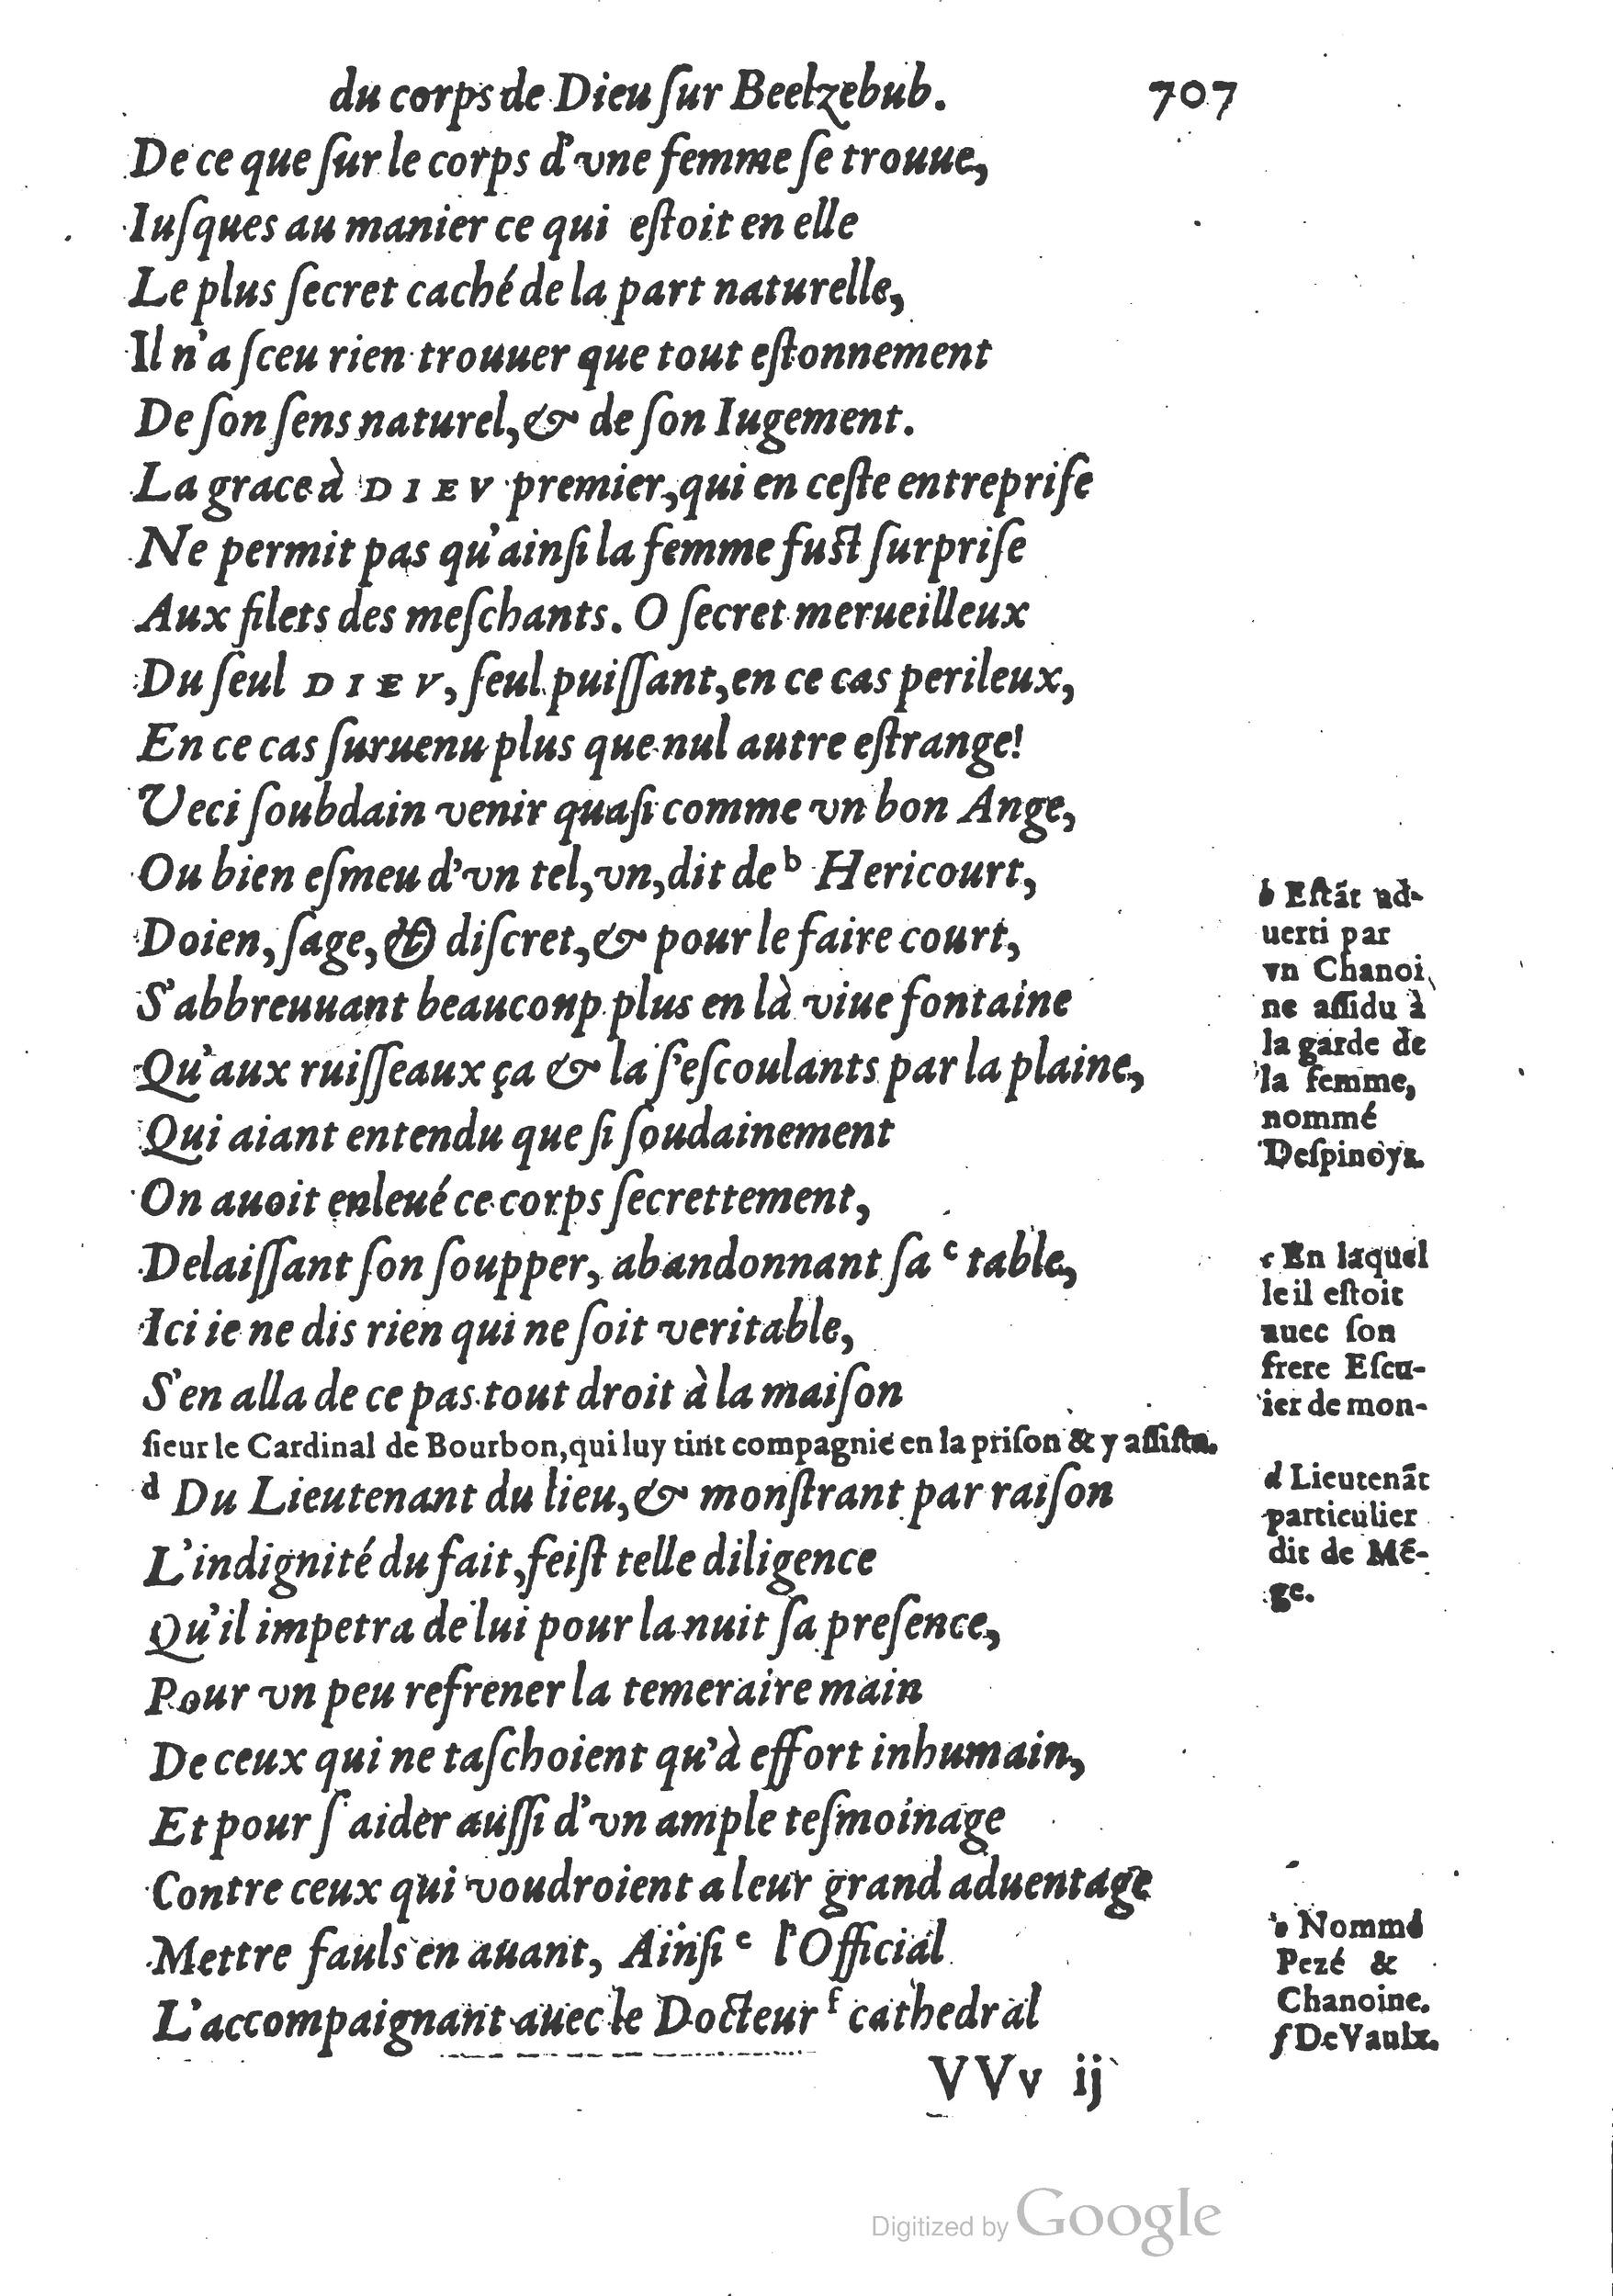 du corps de Dieu ſur Beelzebub. 707
De ce que ſur le corps d'vne femme ſe trouue,
Iuſques au manier ce qui eſtoit en elle
Le plus ſecret caché de la part naturelle,
Il n'a ſceu rien trouuer que tout eſtonnement
De ſon ſens naturel, & de ſon Iugement.
La grace à DIEV premier, qui en ceſte entrepriſe
Ne permit pas qu'ainſi la femme fuſt ſurpriſe
Aux filets des meſchants. O ſecret merueilleux
Du ſeul DIEV, ſeul puiſſant, en ce cas perileux,
En ce cas ſuruenu plus que nul autre eſtrange!
Veci ſoubdain venir quaſi comme vn bon Ange,
Ou bien eſmeu d'vn tel, vn, dit de b Hericourt,
Doien, ſage, & diſcret, & pour le faire court,
S'abbreuuant beaucoup plus en là viue fontaine
Qu'aux ruiſſeaux ça & la ſ'eſcoulants par la plaine,
Qui aiant entendu que ſi ſoudainement
On auoit enleué ce corps ſecrettement,
Delaiſſant ſon ſoupper, abandonnant ſa c table,
Ici ie ne dis rien qui ne ſoit veritable,
S'en alla de ce pas tout droit à la maiſon
ſieur le Cardinal de Bourbon, qui luy tint compagnie en la priſon & y aſſiſta.
d Du Lieutenant du lieu, & monſtrant par raiſon
L'indignité du fait, feiſt telle diligence
Qu'il impetra de lui pour la nuit ſa preſence,
Pour vn peu refrener la temeraire main
De ceux qui ne taſchoient qu'à effort inhumain,
Et pour ſ'aider auſſi d'vn ample teſmoinage
Contre ceux qui voudroient a leur grand aduentage
Mettre fauls en auant, Ainſi e l'Official
L'accompaignant auec le Docteur f cathedral
VVv ij
b Eſtāt ad-
uerti par
vn Chanoi
ne aſſidu à
la garde de
la femme,
nommé
Deſpinoys.
c En laquel
le il eſtoit
auec ſon
frere Eſcu-
ier de mon-
d Lieutenāt
particulier
dit de Mē-
ge.
e Nommé
Pezé &
Chanoine.
f De Vaulx.
Digitized by Google